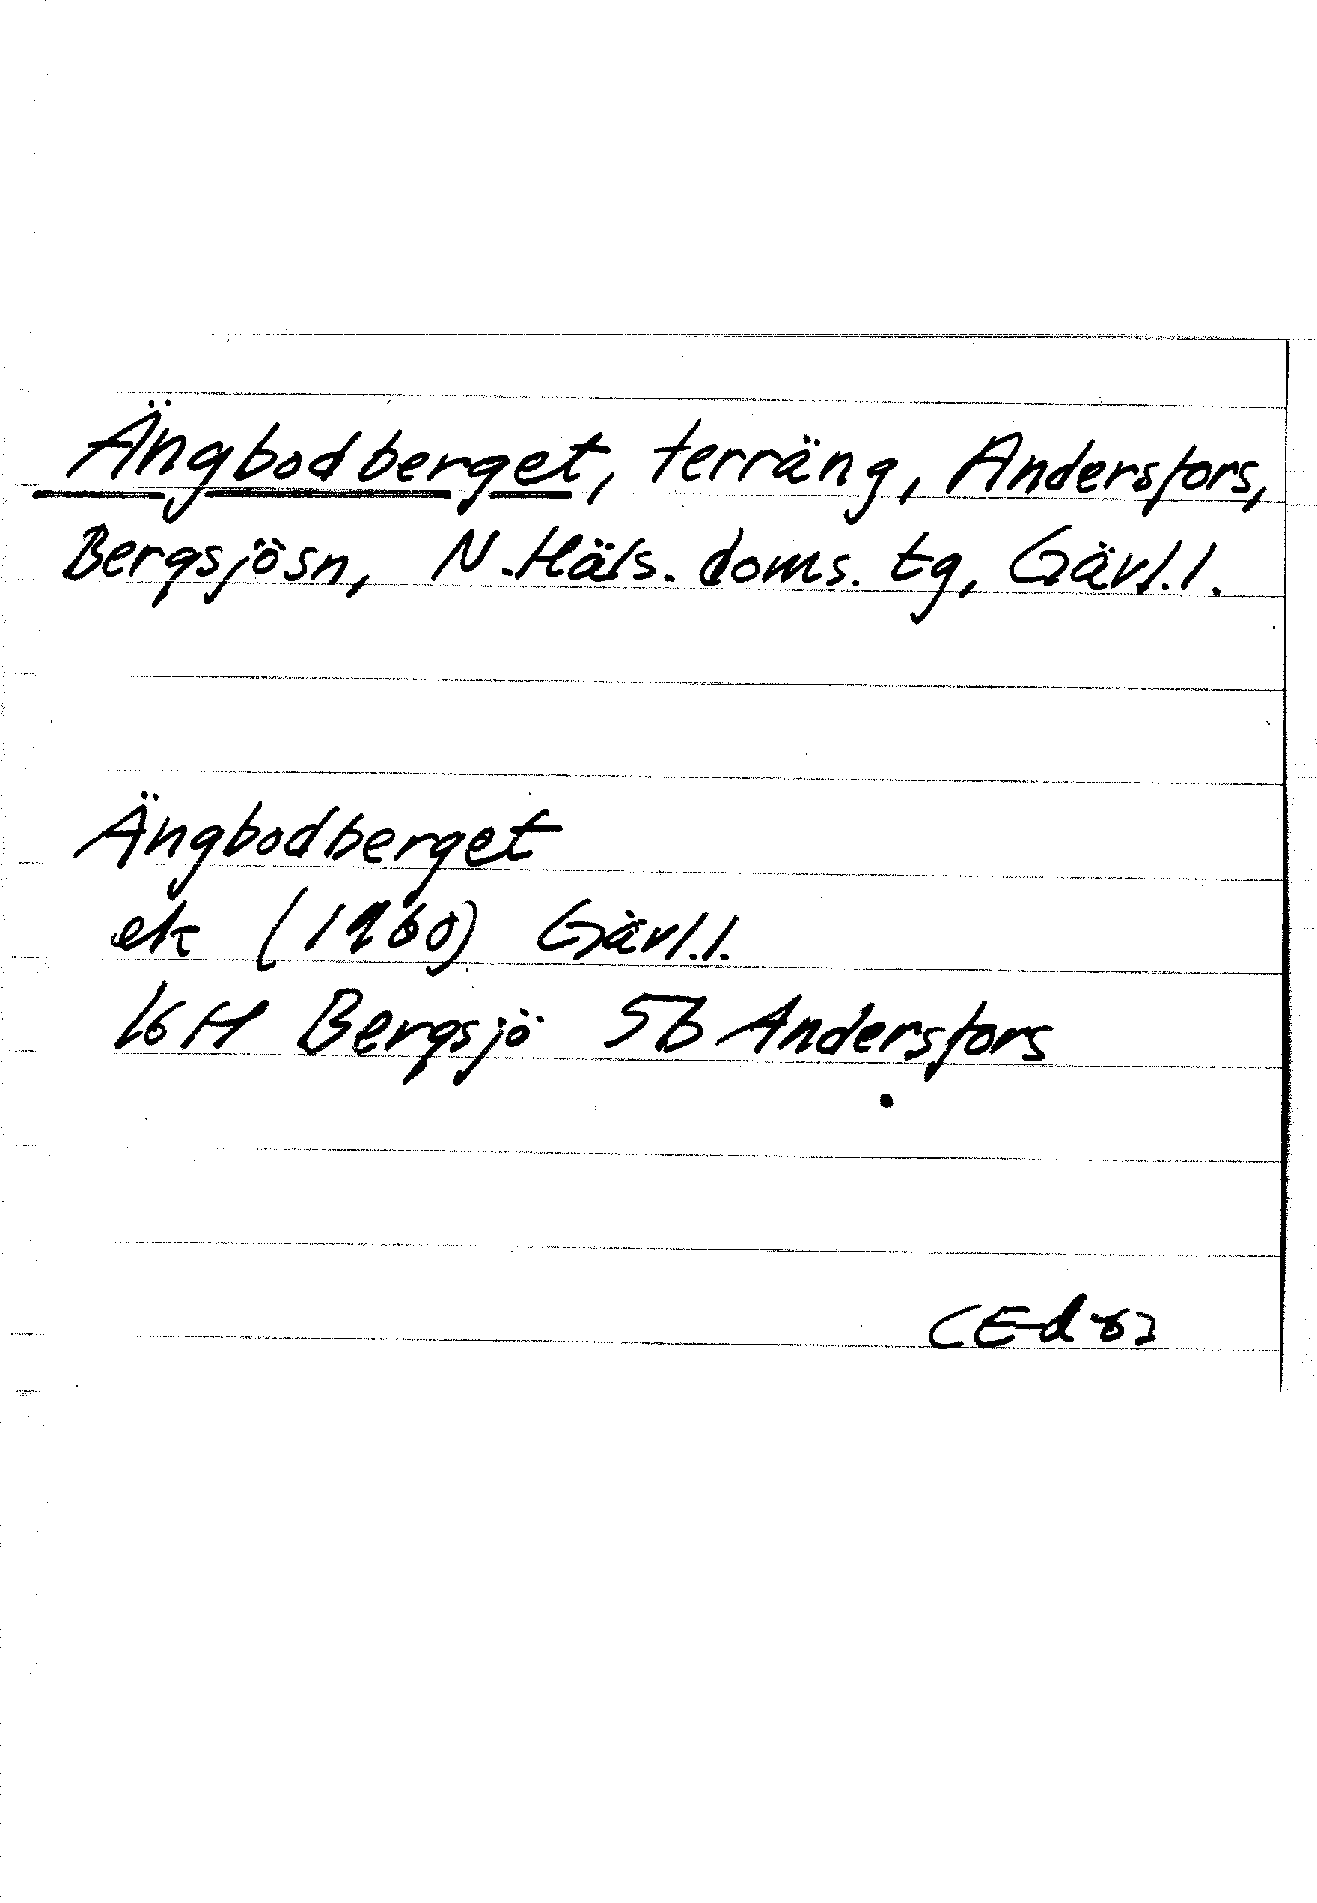 Ängbodberget, terräng, Andersfors,
Bergsjösn, N. Häls. doms. tg, Gävl.l.
Ängbodberget
ek (1960) Gävl.l.
16H Bergsjö 5b Andersfors